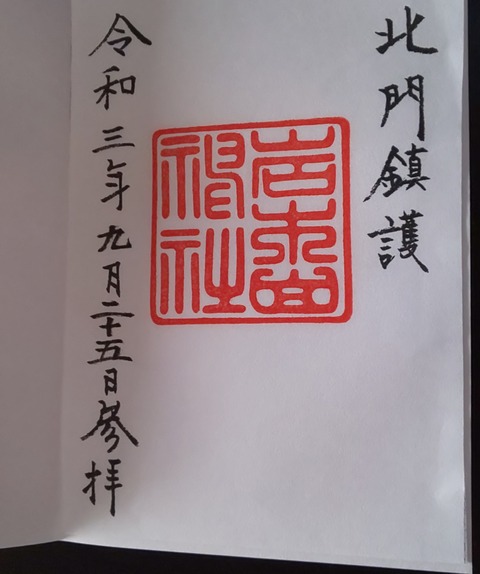 北門鎮護
岩木山神社
令和三年九月二十五日参拝